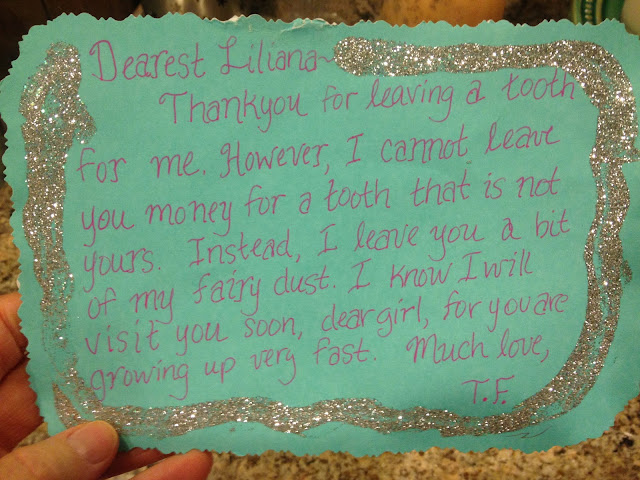 Dearest Liliana~
Thankyou for leaving a tooth
for me. However, I cannot leave
you money for a tooth that is not
yours. Instead, I leave you a bit
of my fairy dust. I know I will
visit you soon, dear girl, for you are
growing up very fast. Much love,
T.F.